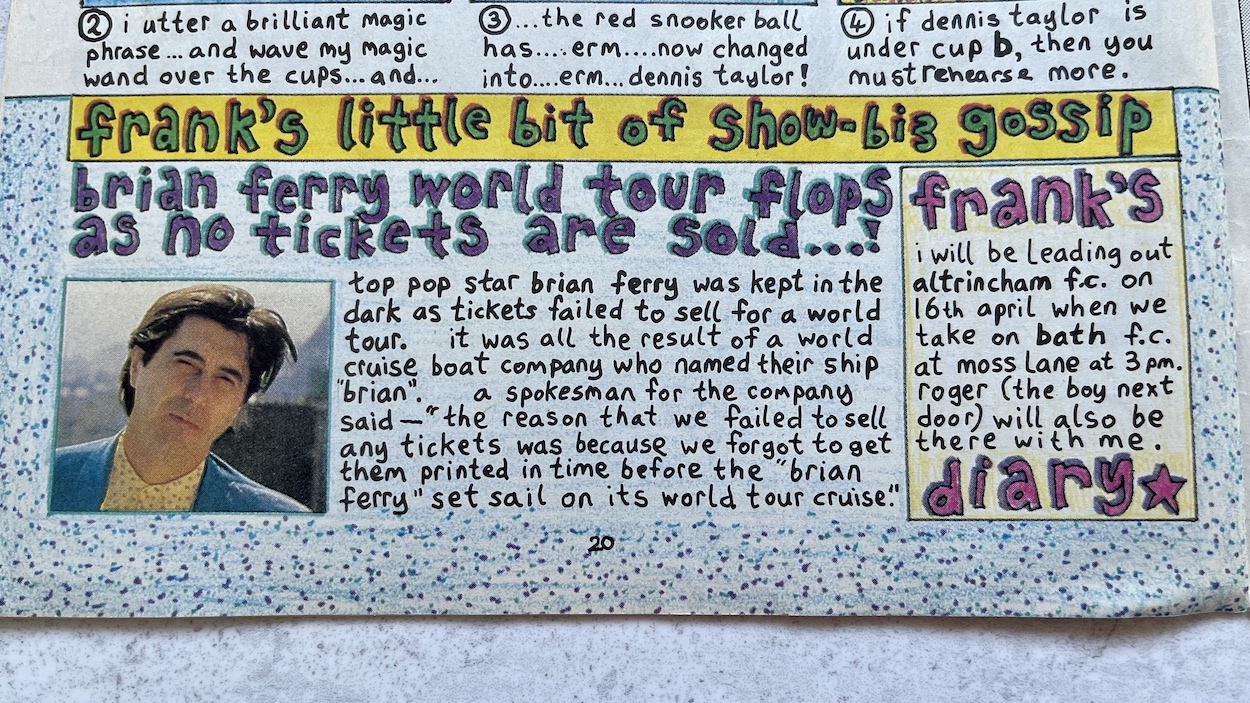 ② i utter a brilliant magic
phrase...and wave my magic
wand over the cups...and...
③...the red snooker ball
has....erm....now changed
into....erm...dennis taylor!
④ if dennis taylor is
under cup b, then you
must rehearse more.
frank's little bit of show-biz gossip
brian ferry world tour flops
as no tickets are sold...!
top pop star brian ferry was kept in the
dark as tickets failed to sell for a world
tour. it was all the result of a world
cruise boat company who named their ship
"brian". a spokesman for the company
said — "the reason that we failed to sell
any tickets was because we forgot to get
them printed in time before the "brian
ferry" set sail on its world tour cruise."
frank's
i will be leading out
altrincham f.c. on
16th april when we
take on bath f.c.
at moss lane at 3pm.
roger (the boy next
door) will also be
there with me.
diary
20